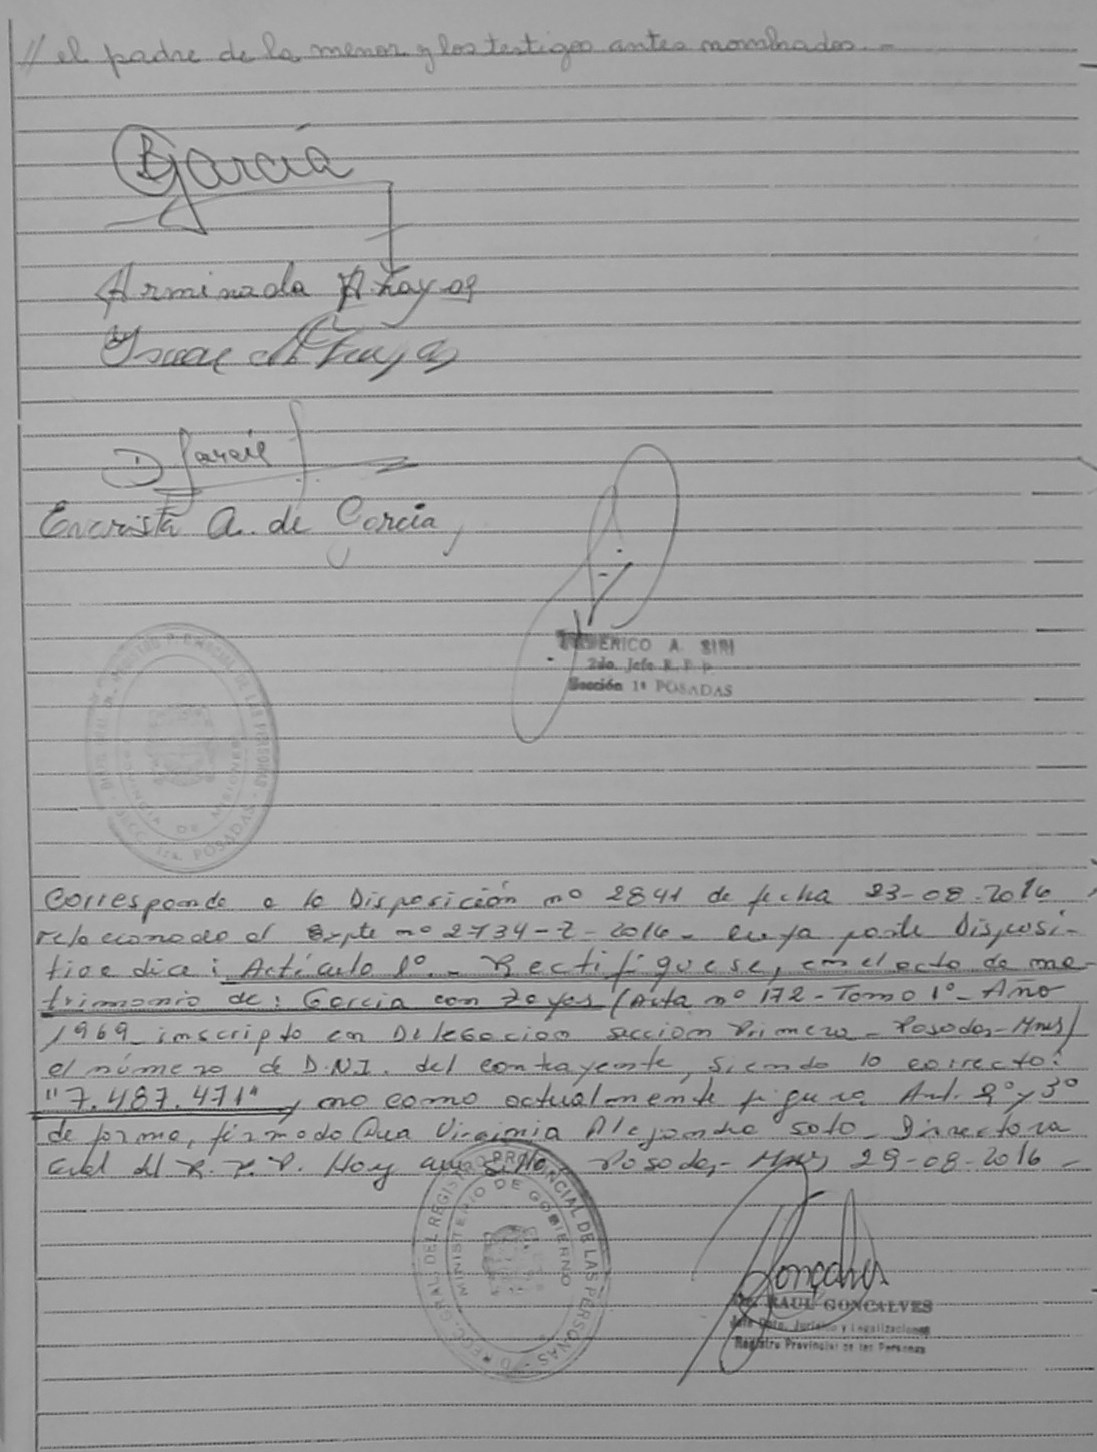 // el padre de la menor y los testigos antes nombrados.-
B García
Arminada A. Zayas
D García
Evarista A. de Garcia,
FEDERICO A. SIRI
2do. Jefe R. P. P.
Sección 1ª POSADAS
Corresponde a la Disposición nº 2841 de fecha 23-08-2016,
relacionado al Expte nº 2734-Z-2016- cuya parte Disposi-
tiva dice: Artículo 1º.- Rectifíquese, en el acta de ma-
trimonio de: Garcia con Zayas (Acta nº 172-Tomo 1º-Año
1969 inscripto en Delegacion seccion Primera-Posadas-Mnes)
el número de D.N.I. del contrayente, siendo lo correcto:
"7.487.471", no como actualmente figura Art. 2º y 3º
de forma, firmado Dra Virginia Alejandra Soto- Directora
Gral del R.P.P. Hay un sello- Posadas-Mnes 29-08-2016-
DIRECC. GRAL. DEL REGISTRO PROVINCIAL DE LAS PERSONAS
MINISTERIO DE GOBIERNO
Gonçalves
Dr. RAUL GONCALVES
Jefe Dpto. Jurídico y Legalizaciones
Registro Provincial de las Personas